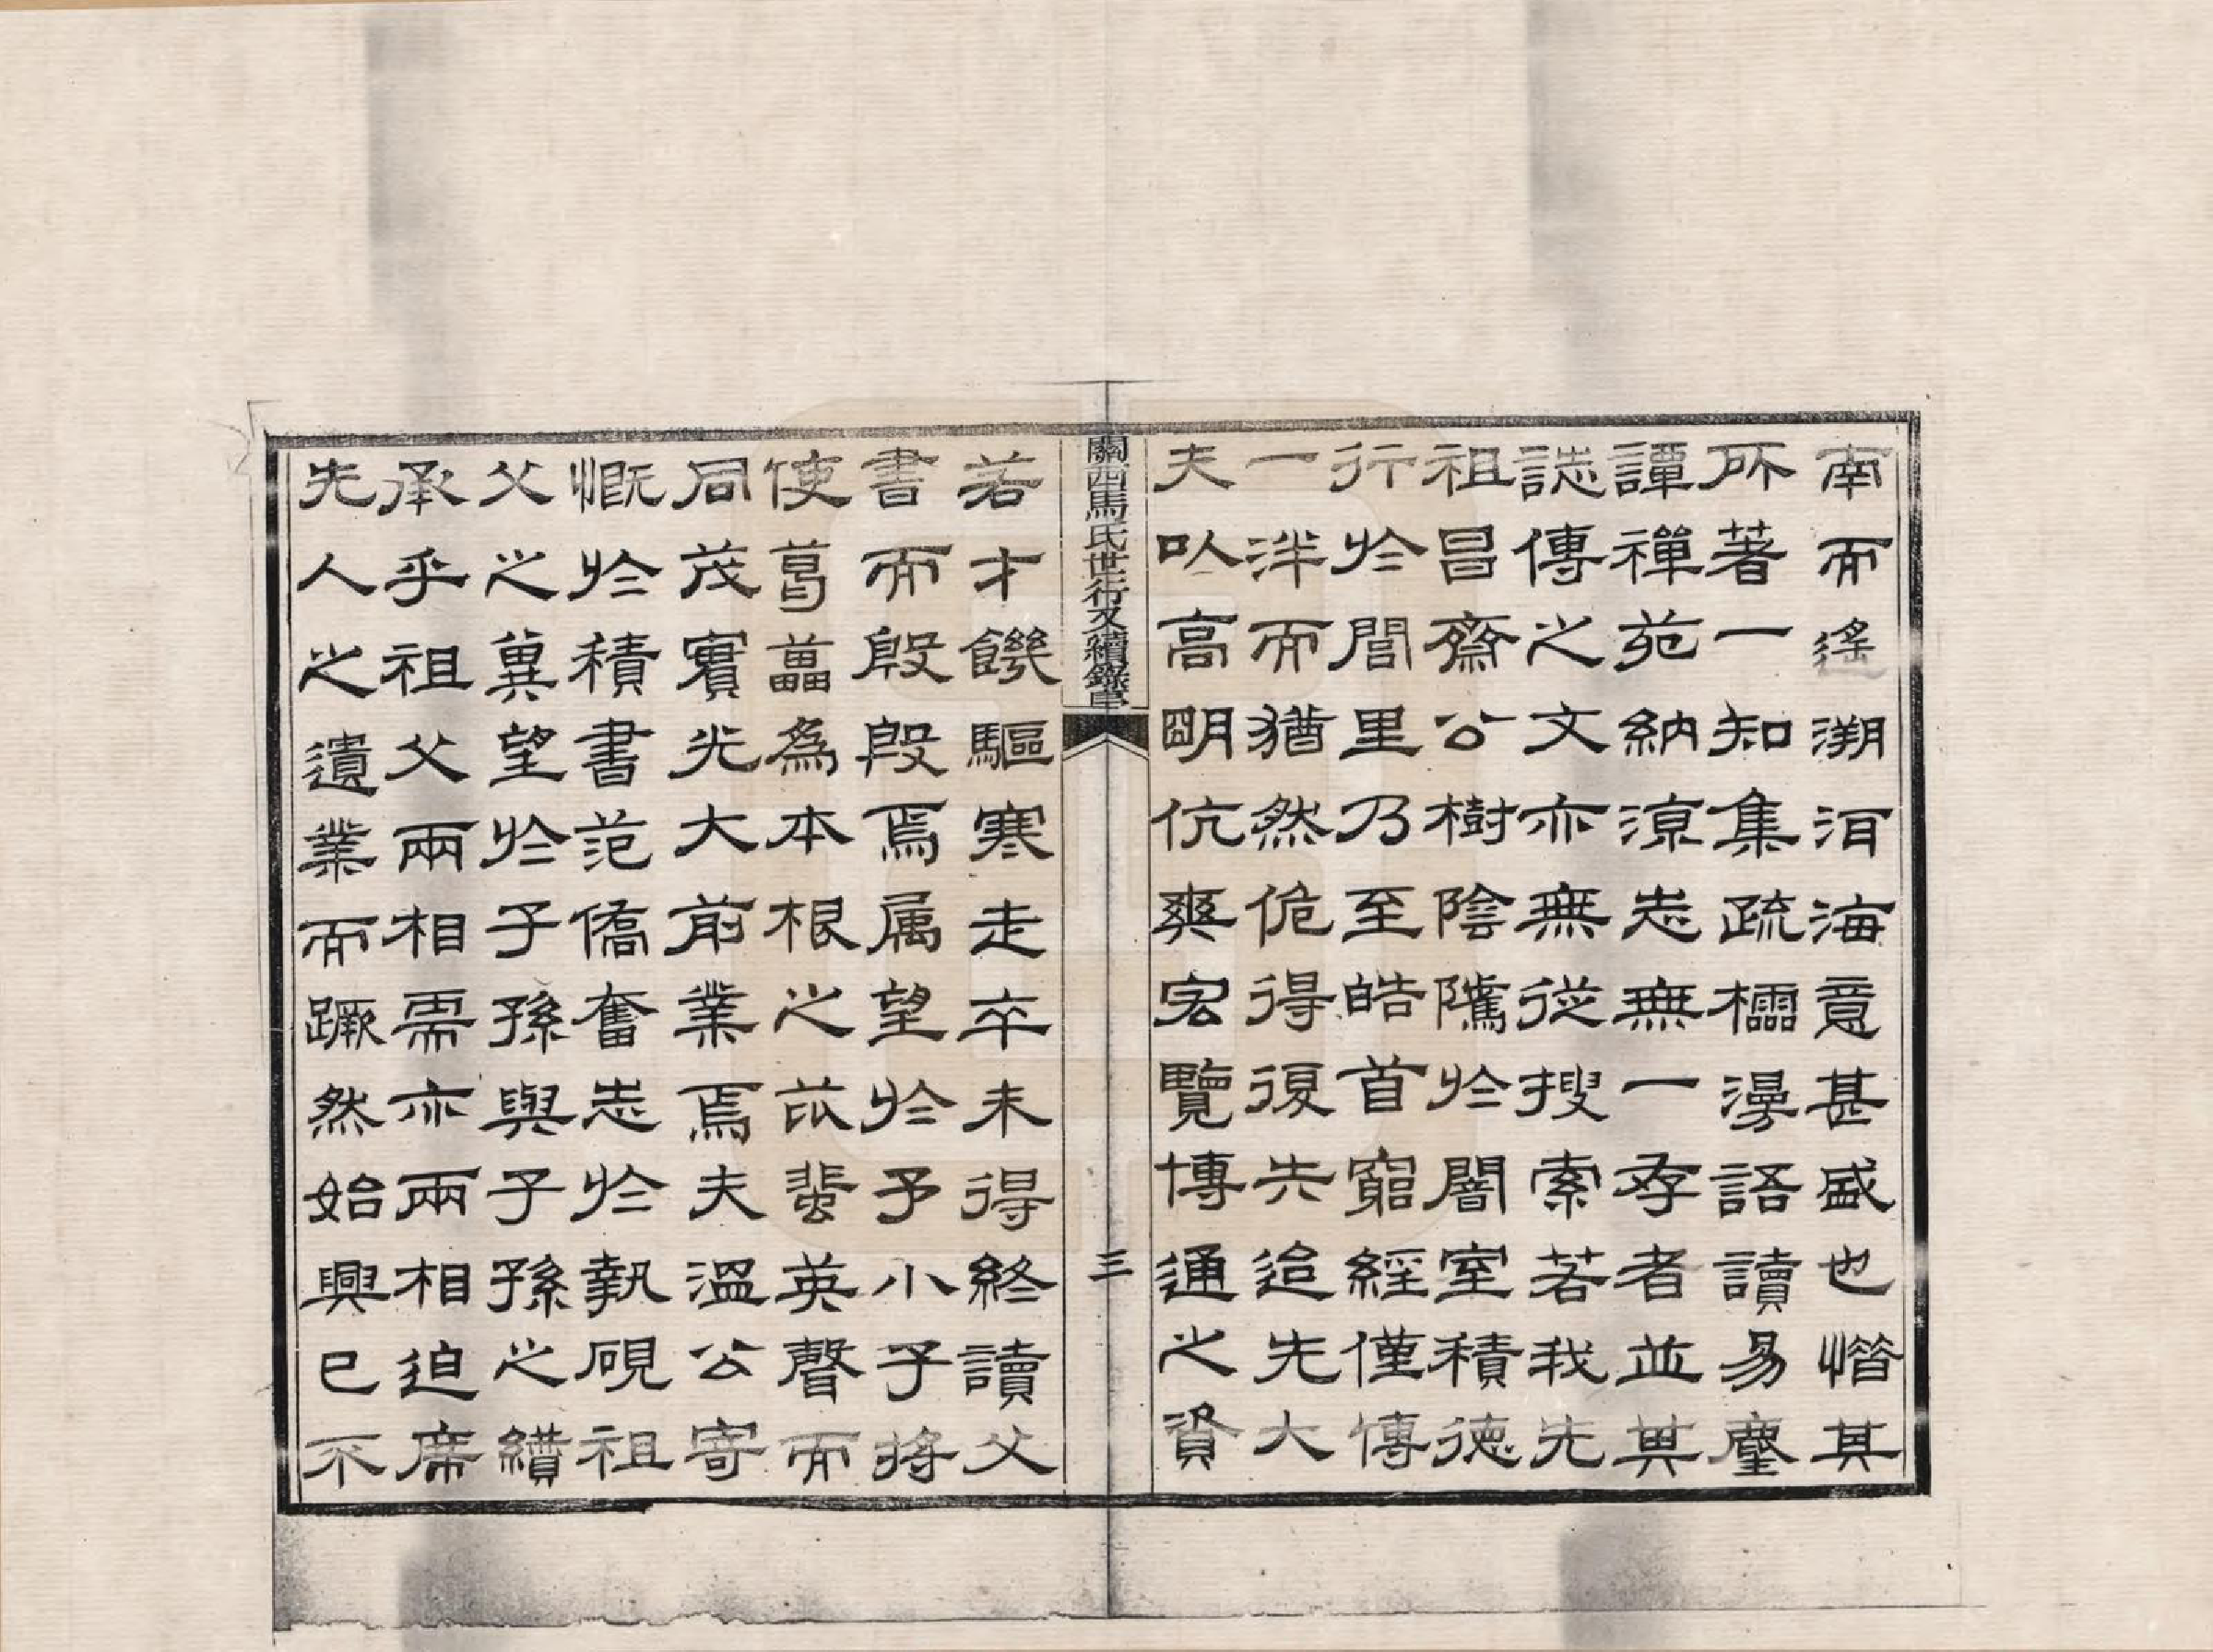 南而遙溯河海意甚盛也惜其
所著一知集疏櫺漫語讀易麈
譚禪苑納涼志無一存者並其
誌傳之文亦無從搜索若我先
祖昌齋公樹陰隲於闇室積德
行於閭里乃至皓首窮經僅傳
一泮而猶然佹得復失迨先大
夫以高明伉爽宏覽博通之資
關西馬氏世行又續錄
三
若才饑驅寒走卒未得終讀父
書而殷殷焉属望於予小子將
使葛藟為本根之庇蜚英聲而
同茂實光大前業焉夫溫公寄
慨於積書范僑奮志於執硯祖
父之冀望於子孫與子孫之纘
承乎祖父兩相需亦兩相迫席
先人之遺業而蹶然始興已不